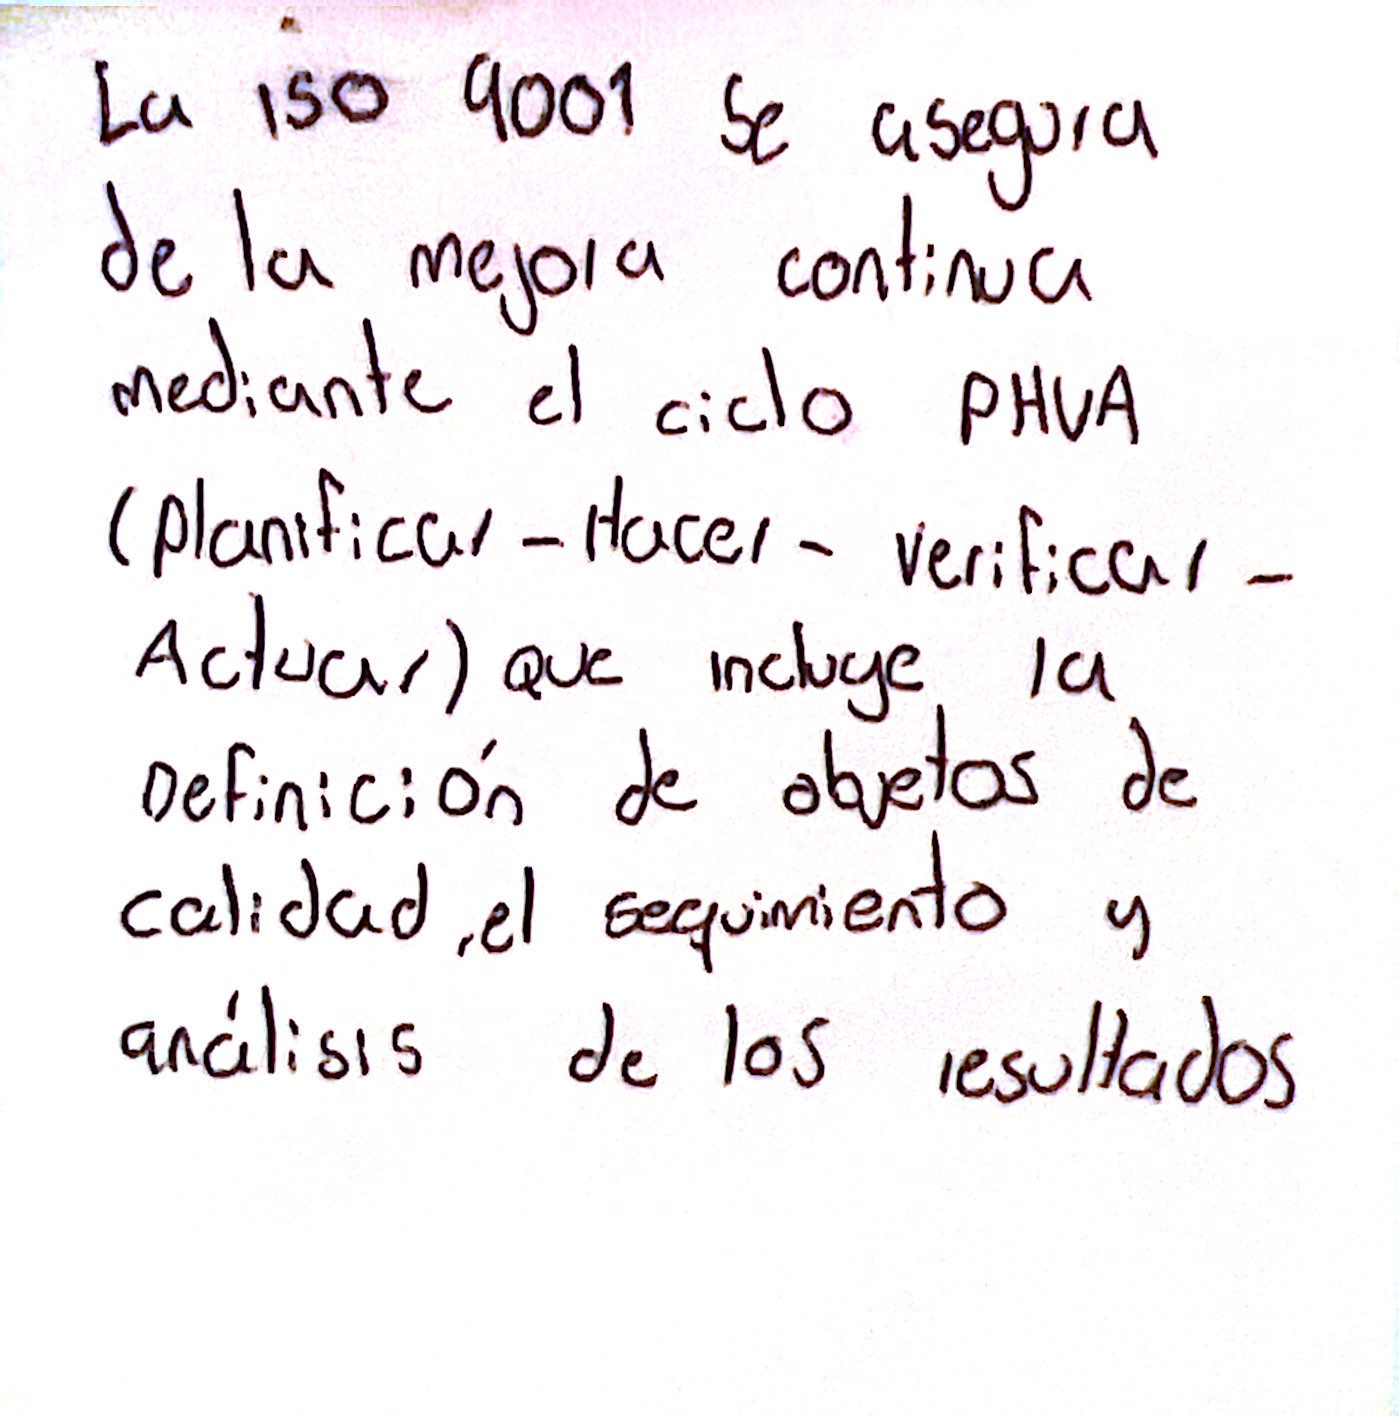 La iso 9001 se asegura
de la mejora continua
mediante el ciclo PHVA
(planificar - Hacer - verificar -
Actuar) que incluye la
Definición de objetos de
calidad, el seguimiento y
análisis de los resultados